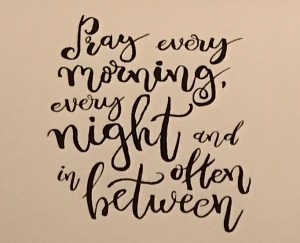 Pray every
morning,
every
night and
in often
between